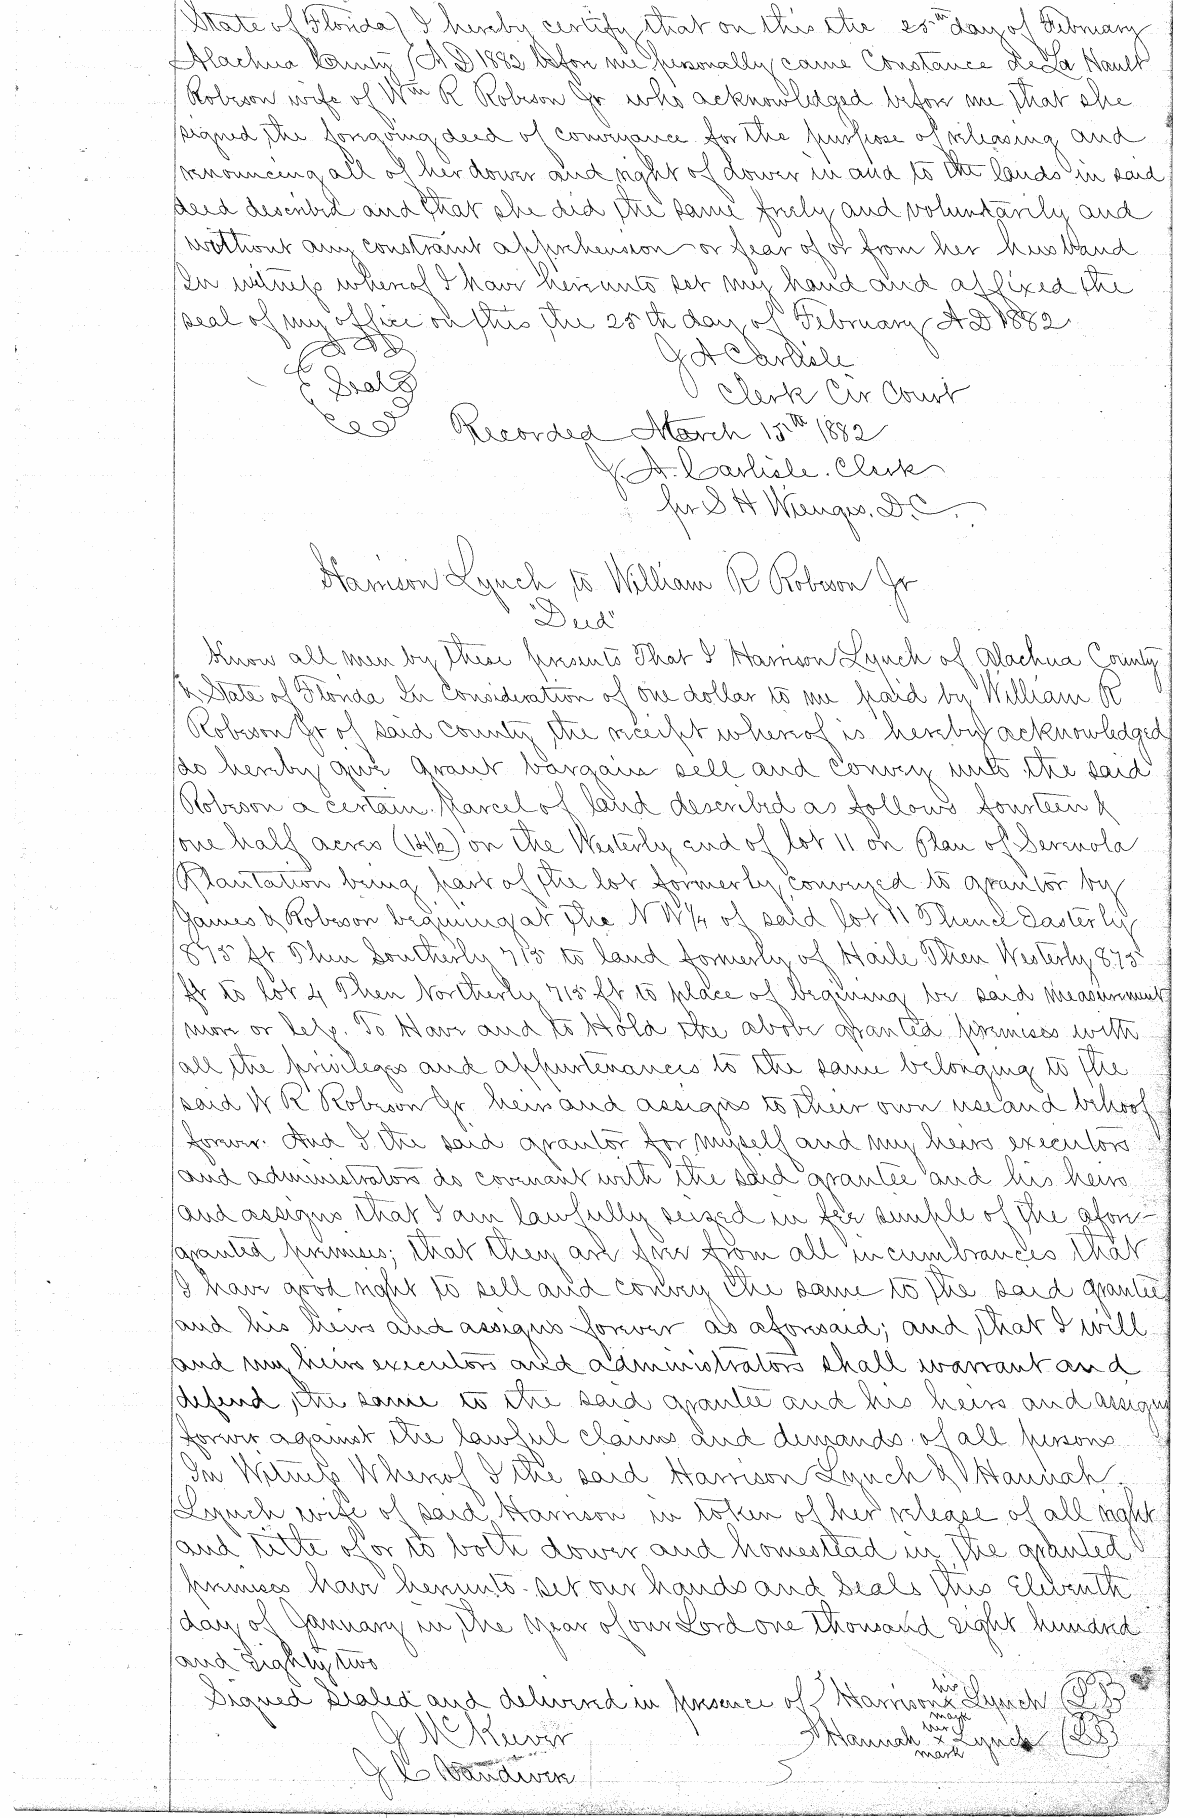 State of Florida) I hereby certify that on this the 25th day of February
Alachua County (A D 1882 before me personally came Constance de La Hault
Robeson wife of Wm R Robeson Jr who acknowledged before me that she
signed the foregoing deed of conveyance for the purpose of releasing and
renouncing all of her dower and right of dower in and to the lands in said
deed described and that she did the same freely and voluntarily and
without any constraint apprehension or fear of or from her husband
In witness whereof I have hereunto set my hand and affixed the
seal of my office on this the 25th day of February A D 1882
J A Carlisle
Seal
Clerk Cir Court
Recorded March 15th 1882
J. A. Carlisle. Clerk
per S H Wienges. D.C.
Harrison Lynch to William R Robeson Jr
"Deed"
Know all men by these presents That I Harrison Lynch of Alachua County
& State of Florida In Consideration of one dollar to me paid by William R
Robeson Jr of said county the receipt whereof is hereby acknowledged
do hereby give grant bargain sell and convey unto the said
Robeson a certain parcel of land described as follows fourteen &
one half acres (14½) on the Westerly end of lot 11 on Plan of Serenola
Plantation being part of the lot formerly conveyed to grantor by
James & Robeson begining at the N W¼ of said lot 11 Thence Easterly
875 ft Then Southerly 715 to land formerly of Haile Then Westerly 875
ft to lot 4 Then Northerly 715 ft to place of begining be said measurement
more or less. To Have and to Hold the above granted premises with
all the privileges and appurtenances to the same belonging to the
said W R Robeson Jr heirs and assigns to their own use and behoof
forever. And I the said grantor for myself and my heirs executors
and administrators do covenant with the said grantee and his heirs
and assigns that I am lawfully seized in fee simple of the afore-
granted premises; that they are free from all incumbrances that
I have good right to sell and convey the same to the said grantee
and his heirs and assigns forever as aforesaid; and that I will
and my heirs executors and administrators shall warrant and
defend the same to the said grantee and his heirs and assigns
forever against the lawful claims and demands of all persons
In Witness Whereof I the said Harrison Lynch & Hannah
Lynch wife of said Harrison in token of her release of all right
and title of or to both dower and homestead in the granted
premises have hereunto set our hands and seals this Eleventh
day of January in the year of our Lord one thousand eight hundred
and eighty two
Signed Sealed and delivered in presence of Harrison his x mark Lynch (LS)
J McKeever Hannah her x mark Lynch (LS)
J C Vandiver